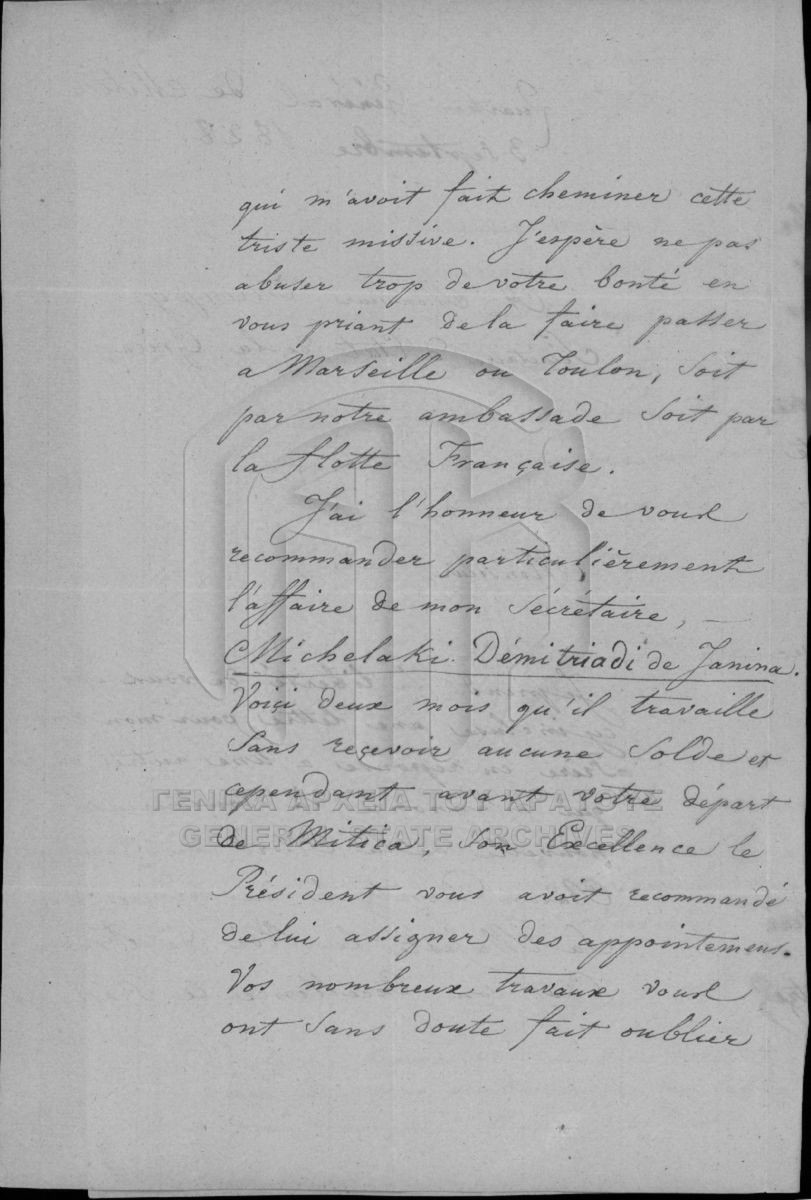 qui m'avoit fait cheminer cette
triste missive. J'espère ne pas
abuser trop de votre bonté en
vous priant de la faire passer
a Marseille ou Toulon, soit
par notre ambassade soit par
la flotte Française.
J'ai l'honneur de vous
recommander particulièrement
l'affaire de mon Sécrétaire, —
Michelaki Démitriadi de Janina.
Voiçi deux mois qu'il travaille
sans reçevoir aucune solde et
cependant avant votre départ
de Mitica, son Excellence le
Président vous avoit recommandé
de lui assigner des appointemens.
Vos nombreux travaux vous
ont sans doute fait oublier
ΓΕΝΙΚΑ ΑΡΧΕΙΑ ΤΟΥ ΚΡΑΤΟΥΣ
GENERAL STATE ARCHIVES